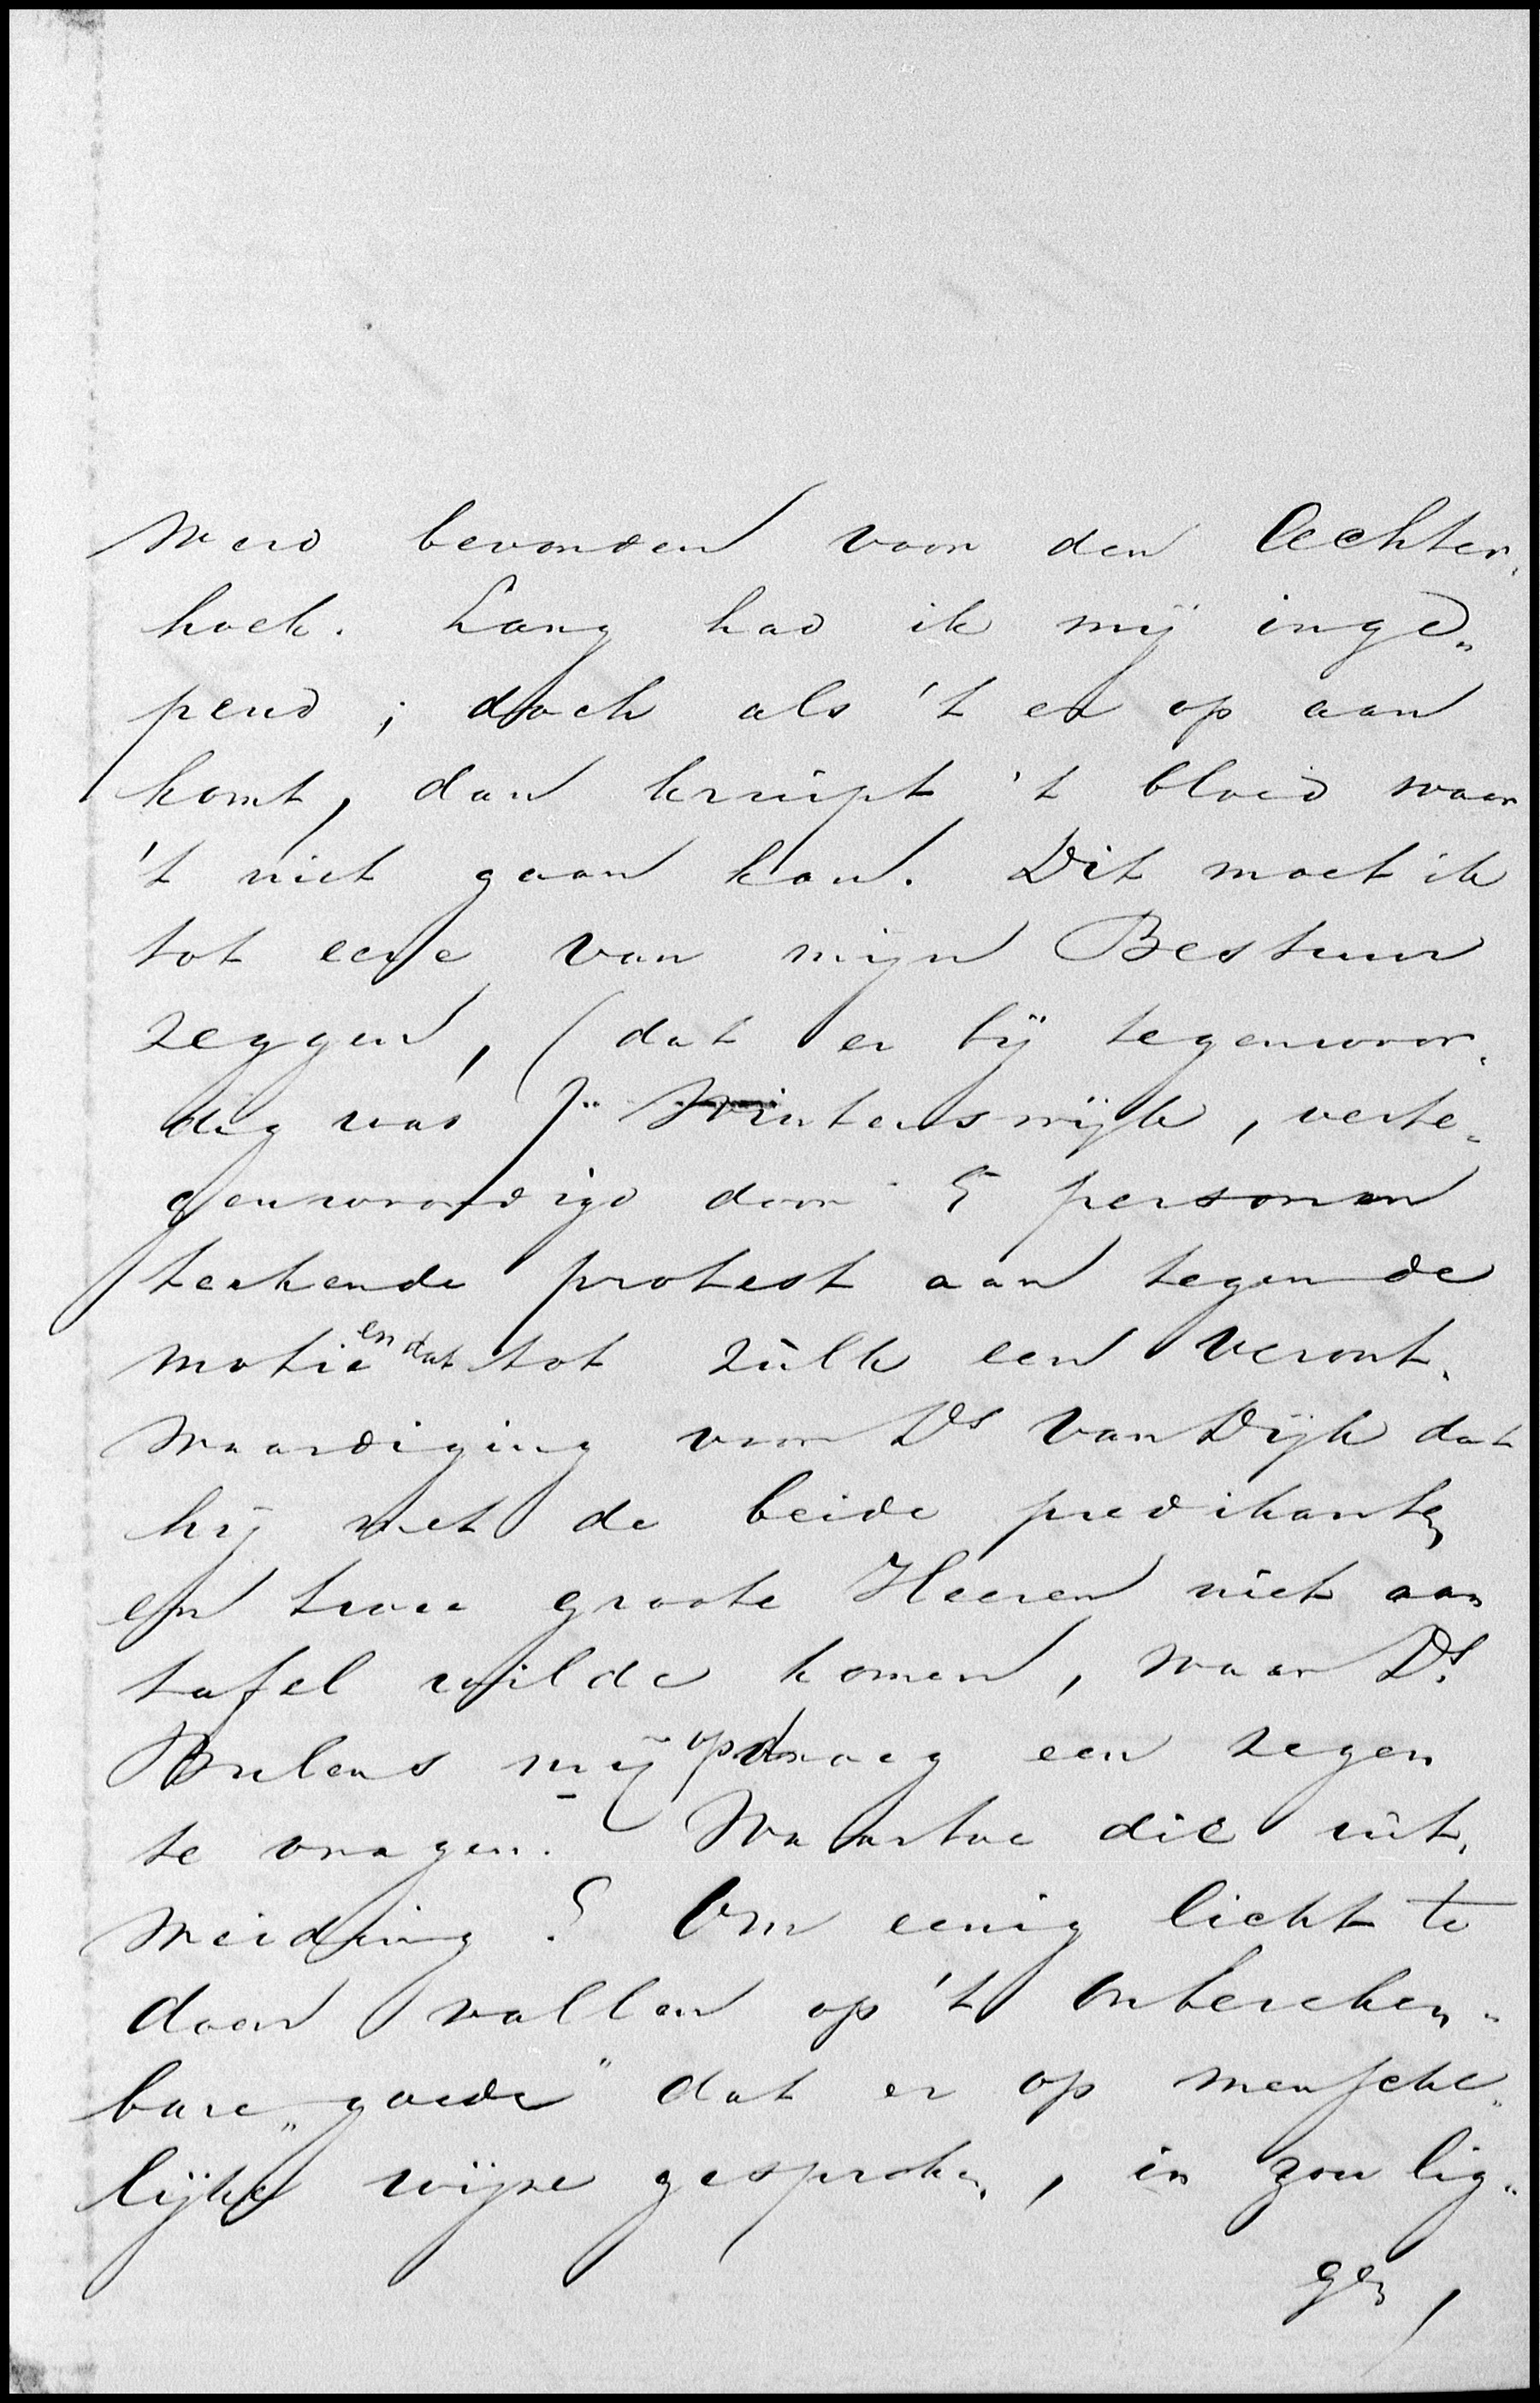 werd bevonden voor den Achter„
hoek. Lang had ik mij inge„
pend; doch als 't er op aan
komt, dan kruipt 't bloed waar
't niet gaan kan. Dit moet ik
tot eere van mijn Bestuur
zeggen, (dat er bij tegenwoor„
dig was) Winterswijk, verte„
genwoordigd door 5 personen
teekende protest aan tegen de
motie en dat tot zulk een veront„
waardiging van Ds van Dijk dat
hij met de beide predikanten
en twee groote Heeren niet aan
tafel wilde komen, waar Ds.
Brulens mij opdroeg een zegen
te vragen. Waartoe die uit„
weiding? Om eenig licht te
doen vallen op 't onbereken„
bare „goede" dat er op mensche„
lijke wijze gesproken, in zou lig„
gen,